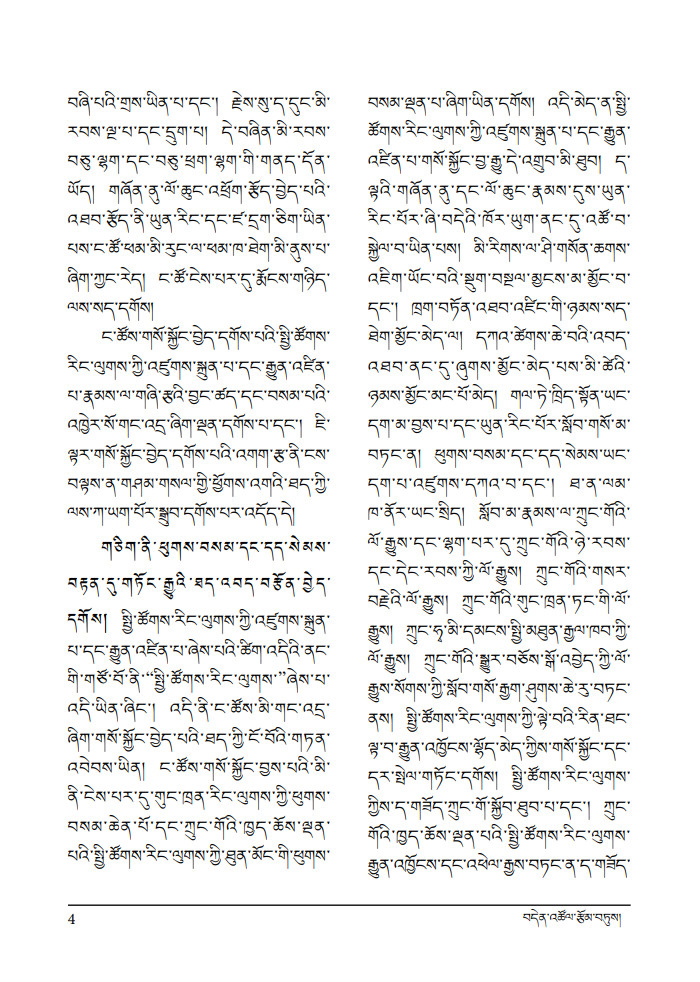 བཞི་པའི་གྲས་ཡིན་པ་དང་། རྗེས་སུ་ད་དུང་མི་
རབས་ལྔ་པ་དང་དྲུག་པ། དེ་བཞིན་མི་རབས་
བཅུ་ལྷག་དང་བཅུ་ཕྲག་ལྷག་གི་གནད་དོན་
ཡོད། གཞོན་ནུ་ལོ་ཆུང་འཕྲོག་རྩོད་བྱེད་པའི་
འཐབ་རྩོད་ནི་ཡུན་རིང་དང་ཛ་དྲག་ཅིག་ཡིན་
པས་ང་ཚོ་ཕམ་མི་རུང་ལ་ཕམ་ཁ་ཐེག་མི་ནུས་པ་
ཞིག་ཀྱང་རེད། ང་ཚོ་ངེས་པར་དུ་རྨོངས་གཉིད་
ལས་སད་དགོས།
ང་ཚོས་གསོ་སྐྱོང་བྱེད་དགོས་པའི་སྤྱི་ཚོགས་
རིང་ལུགས་ཀྱི་འཛུགས་སྐྲུན་པ་དང་རྒྱུན་འཛིན་
པ་རྣམས་ལ་གཞི་རྩའི་བྱང་ཚད་དང་བསམ་པའི་
འཁྱེར་སོ་གང་འདྲ་ཞིག་ལྡན་དགོས་པ་དང་། ཇི་
ལྟར་གསོ་སྐྱོང་བྱེད་དགོས་པའི་འགག་རྩ་ནི་ངས་
བལྟས་ན་གཤམ་གསལ་གྱི་ཕྱོགས་འགའི་ཐད་ཀྱི་
ལས་ཀ་ཡག་པོར་སྒྲུབ་དགོས་པར་འདོད་དེ།
གཅིག་ནི་ཕུགས་བསམ་དང་དད་སེམས་
བརྟན་དུ་གཏོང་རྒྱུའི་ཐད་འབད་བརྩོན་བྱེད་
དགོས། སྤྱི་ཚོགས་རིང་ལུགས་ཀྱི་འཛུགས་སྐྲུན་
པ་དང་རྒྱུན་འཛིན་པ་ཞེས་པའི་ཚིག་འདིའི་ནང་
གི་གཙོ་བོ་ནི་“སྤྱི་ཚོགས་རིང་ལུགས་”ཞེས་པ་
འདི་ཡིན་ཞིང་། འདི་ནི་ང་ཚོས་མི་གང་འདྲ་
ཞིག་གསོ་སྐྱོང་བྱེད་པའི་ཐད་ཀྱི་ངོ་བོའི་གཏན་
འབེབས་ཡིན། ང་ཚོས་གསོ་སྐྱོང་བྱས་པའི་མི་
ནི་ངེས་པར་དུ་གུང་ཁྲན་རིང་ལུགས་ཀྱི་ཕུགས་
བསམ་ཆེན་པོ་དང་ཀྲུང་གོའི་ཁྱད་ཆོས་ལྡན་
པའི་སྤྱི་ཚོགས་རིང་ལུགས་ཀྱི་ཐུན་མོང་གི་ཕུགས་
བསམ་ལྡན་པ་ཞིག་ཡིན་དགོས། འདི་མེད་ན་སྤྱི་
ཚོགས་རིང་ལུགས་ཀྱི་འཛུགས་སྐྲུན་པ་དང་རྒྱུན་
འཛིན་པ་གསོ་སྐྱོང་བྱ་རྒྱུ་དེ་འགྲུབ་མི་ཐུབ། ད་
ལྟའི་གཞོན་ནུ་དང་ལོ་ཆུང་རྣམས་དུས་ཡུན་
རིང་པོར་ཞི་བདེའི་ཁོར་ཡུག་ནང་དུ་འཚོ་བ་
སྐྱེལ་བ་ཡིན་པས། མི་རིགས་ལ་ཤི་གསོན་ཆགས་
འཇིག་ཡོང་བའི་སྡུག་བསྔལ་མྱངས་མ་མྱོང་བ་
དང་། ཁྲག་བཏོན་འཐབ་འཛིང་གི་ཉམས་སད་
ཐེག་མྱོང་མེད་ལ། དཀའ་ཚེགས་ཆེ་བའི་འབད་
འཐབ་ནང་དུ་ཞུགས་མྱོང་མེད་པས་མི་ཚེའི་
ཉམས་མྱོང་མང་པོ་མེད། གལ་ཏེ་ཁྲིད་སྟོན་ཡང་
དག་མ་བྱས་པ་དང་ཡུན་རིང་པོར་སློབ་གསོ་མ་
བཏང་ན། ཕུགས་བསམ་དང་དད་སེམས་ཡང་
དག་པ་འཛུགས་དཀའ་བ་དང་། ཐ་ན་ལམ་
ཁ་ནོར་ཡང་སྲིད། སློབ་མ་རྣམས་ལ་ཀྲུང་གོའི་
ལོ་རྒྱུས་དང་ལྷག་པར་དུ་ཀྲུང་གོའི་ཉེ་རབས་
དང་དེང་རབས་ཀྱི་ལོ་རྒྱུས། ཀྲུང་གོའི་གསར་
བརྗེའི་ལོ་རྒྱུས། ཀྲུང་གོའི་གུང་ཁྲན་ཏང་གི་ལོ་
རྒྱུས། ཀྲུང་ཧྭ་མི་དམངས་སྤྱི་མཐུན་རྒྱལ་ཁབ་ཀྱི་
ལོ་རྒྱུས། ཀྲུང་གོའི་སྒྱུར་བཅོས་སྒོ་འབྱེད་ཀྱི་ལོ་
རྒྱུས་སོགས་ཀྱི་སློབ་གསོ་རྒྱག་ཤུགས་ཆེ་རུ་བཏང་
ནས། སྤྱི་ཚོགས་རིང་ལུགས་ཀྱི་ལྟེ་བའི་རིན་ཐང་
ལྟ་བ་རྒྱུན་འཁྱོངས་ལྷོད་མེད་ཀྱིས་གསོ་སྐྱོང་དང་
དར་སྤེལ་གཏོང་དགོས། སྤྱི་ཚོགས་རིང་ལུགས་
ཀྱིས་ད་གཟོད་ཀྲུང་གོ་སྐྱོབ་ཐུབ་པ་དང་། ཀྲུང་
གོའི་ཁྱད་ཆོས་ལྡན་པའི་སྤྱི་ཚོགས་རིང་ལུགས་
རྒྱུན་འཁྱོངས་དང་འཕེལ་རྒྱས་བཏང་ན་ད་གཟོད་
4
བདེན་འཚོལ་རྩོམ་བཏུས།